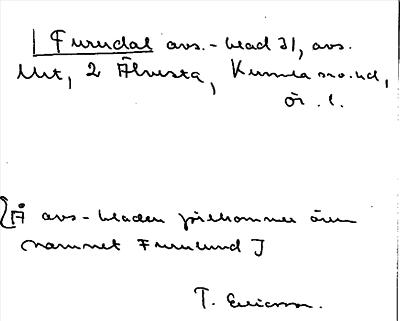 Furudal avs.-blad 31, avs.
utt, 2 Älvesta, Kumla sn o. hd,
ör. l.
[På avs-bladen förekommer även
namnet Furulund]
T. Ericsson.